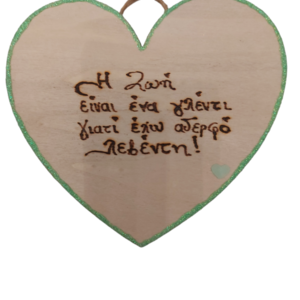 Η Ζωή
είναι ένα γλέντι
γιατί έχω αδερφό
λεβέντη!